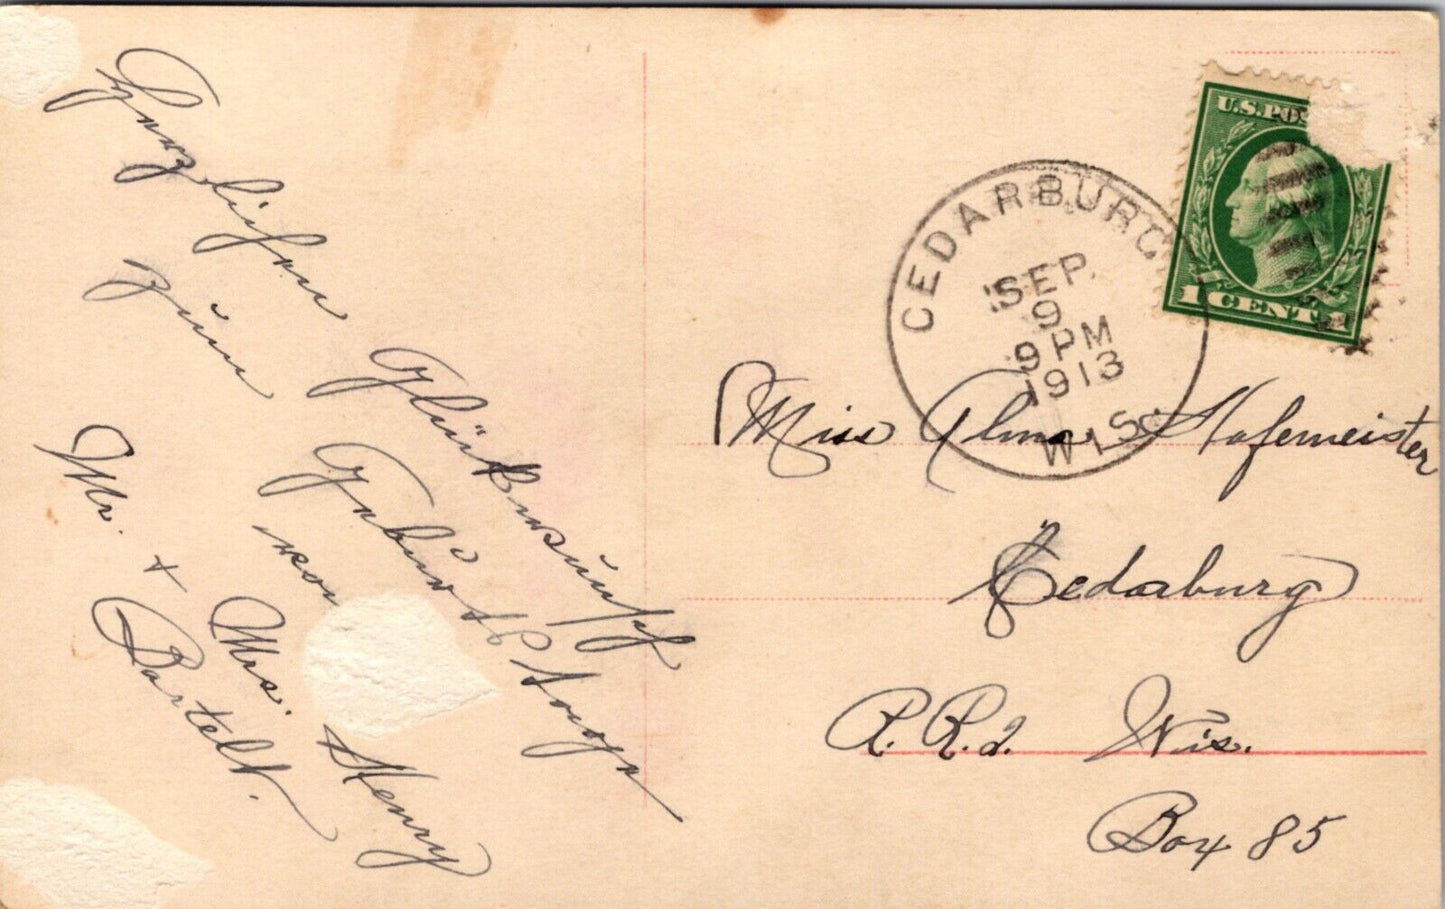 Herzlichen Glückwunsch
zum Geburtstage
von
Mr. + Mrs. Henry
Bartelt.
U.S.POS
1 CENT 1
CEDARBURG
SEP.
9
9 PM
1913
WIS.
Miss Alma Hafemeister
Cedarburg
R.R.2. Wis.
Box 85